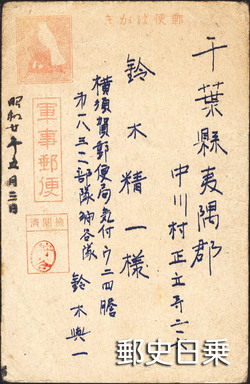 郵便はがき
千葉縣夷隅郡
中川村正立寺二一
鈴木精一様
横須賀郵便局気付ウ二四膽
鈴木與一
軍事郵便
検閲済
昭和廿年五月三日
郵史日乗